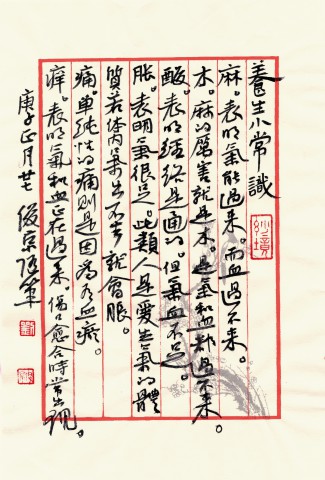 養生小常識
麻。表明氣能過來。而血過不來。
木。麻的厲害就是木。是氣和血都過不來。
酸。表明經絡是通的。但氣血不足。
脹。表明氣很足。此類人是愛生氣的體
質若体内氣出不去就會脹。
痛。單純性的痛則是因為有血瘀。
痒。表明氣和血正在過來。傷口愈合時常出現。
庚子正月廿七
妙境